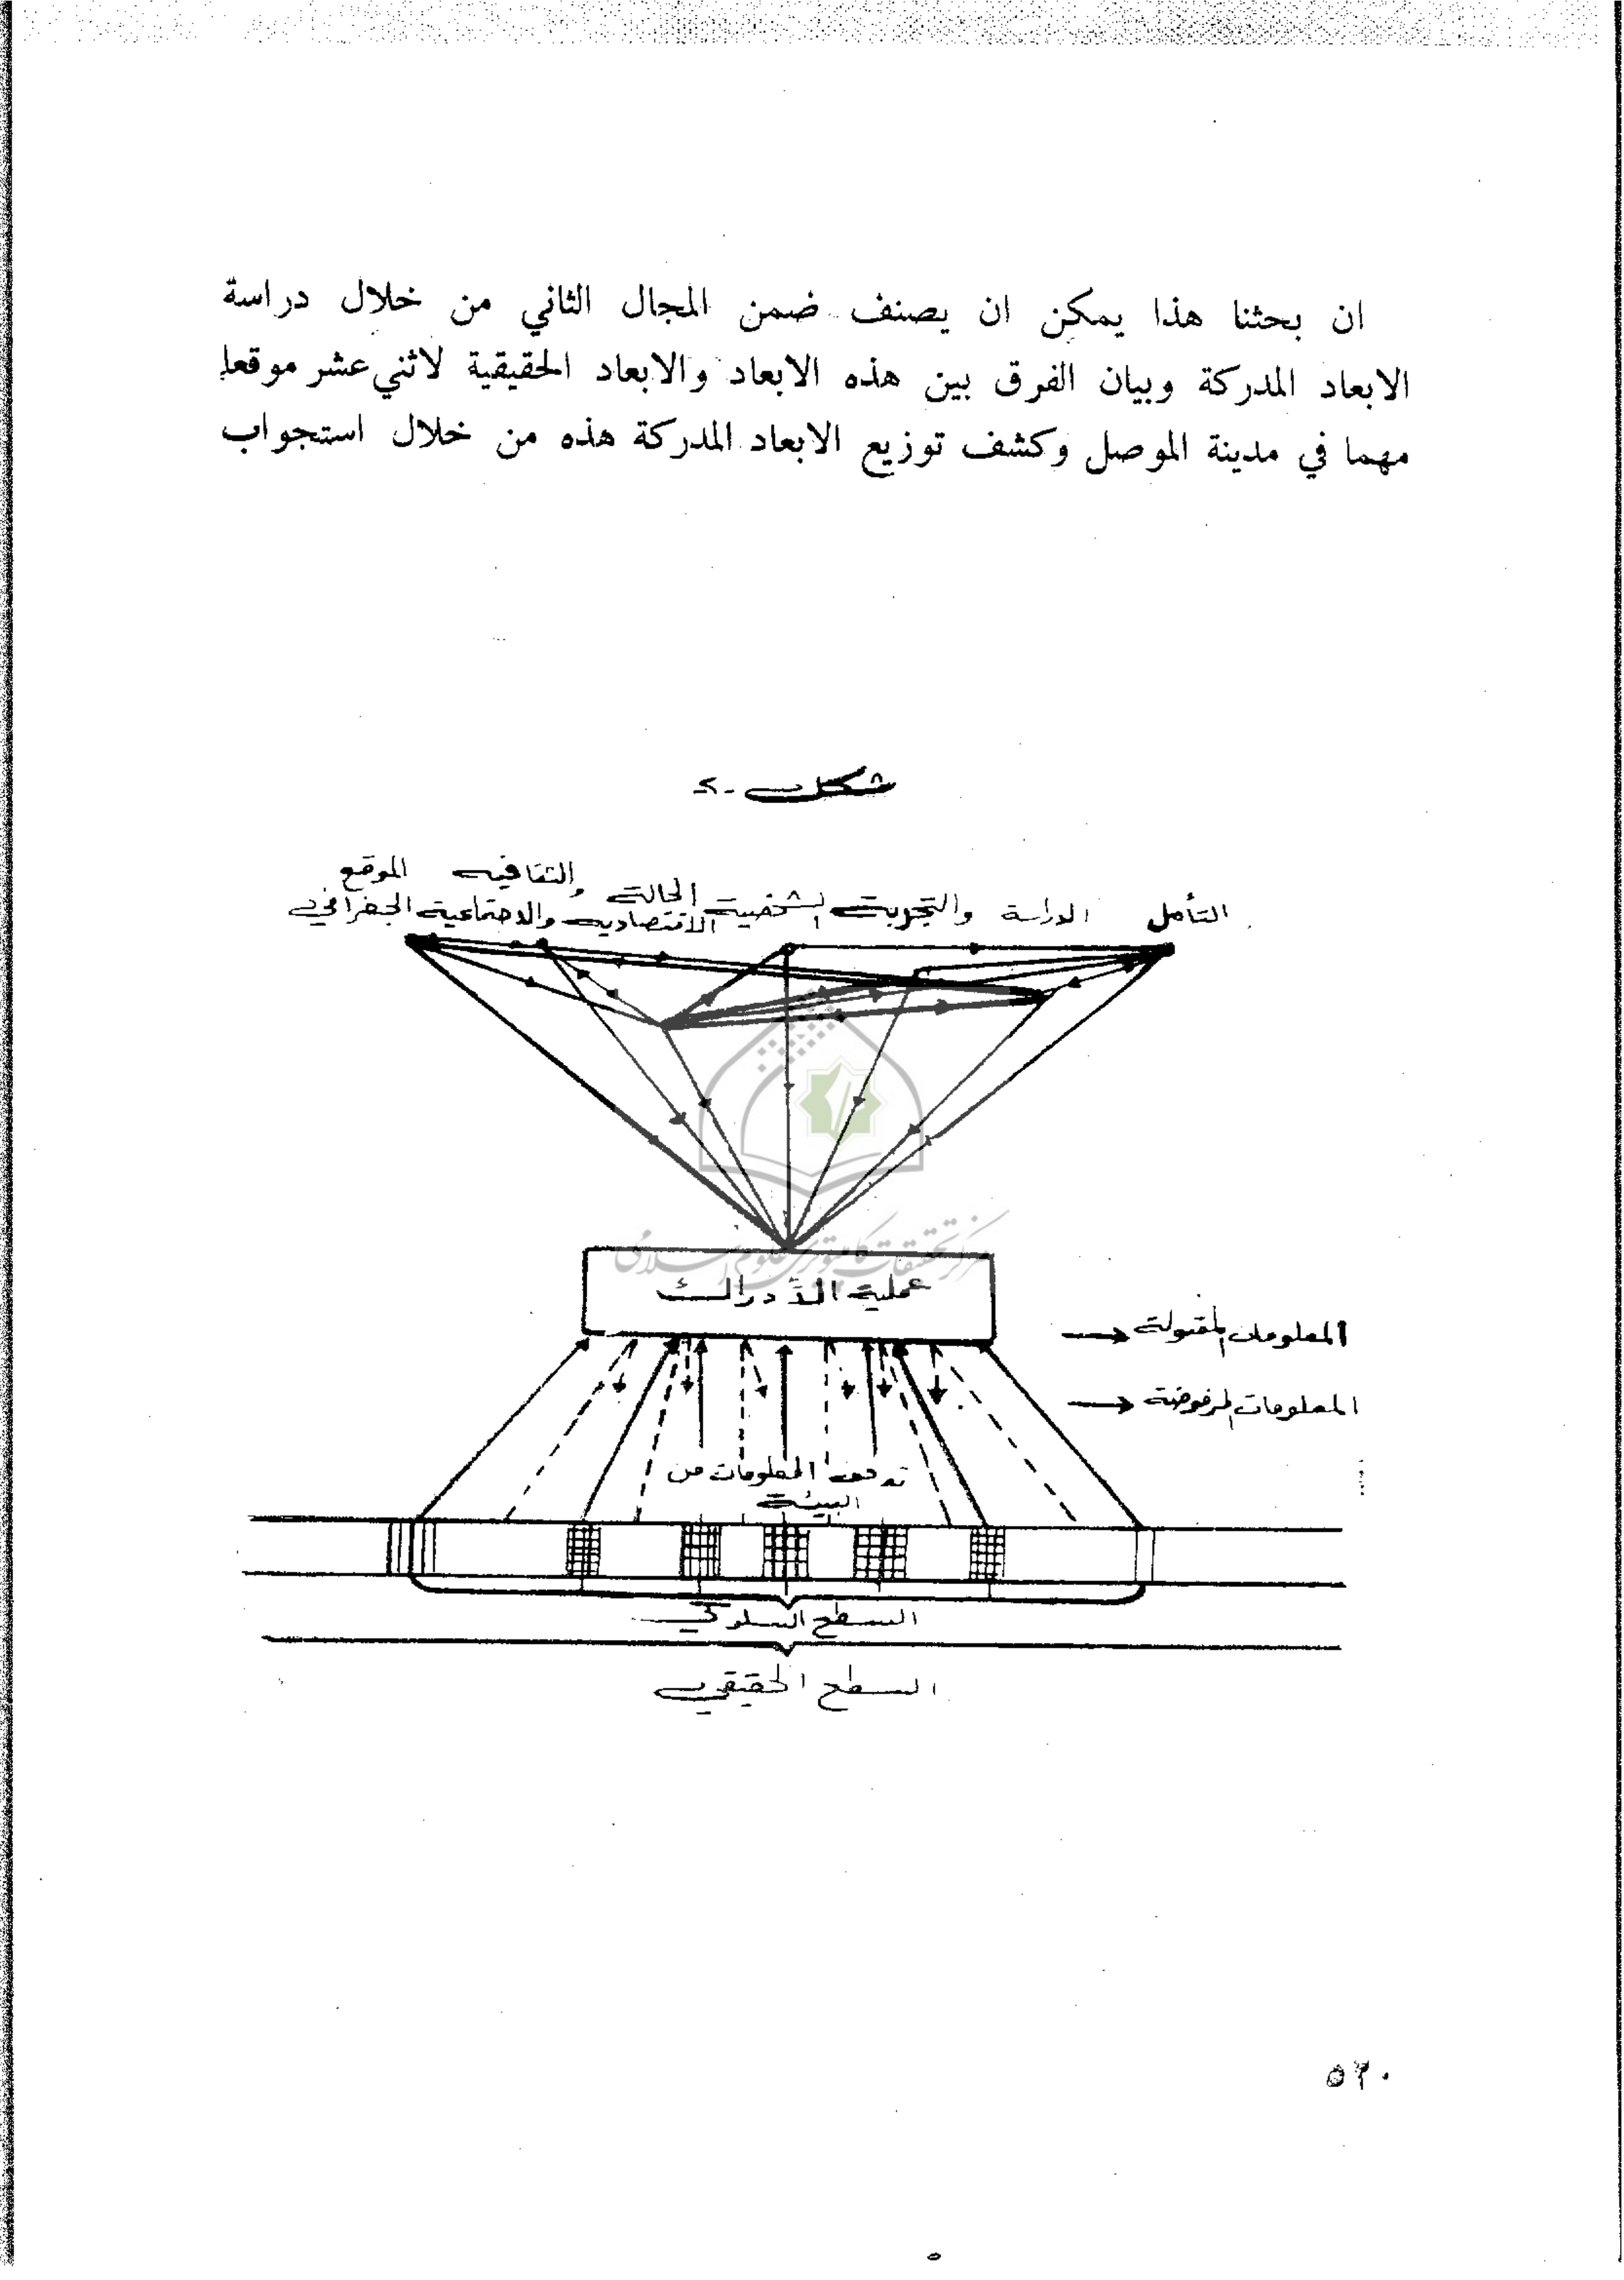 ان بحثنا هذا يمكن ان يصنف ضمن المجال الثاني من خلال دراسة
الابعاد المدركة وبيان الفرق بين هذه الابعاد والابعاد الحقيقية لاثني عشر موقعا
مهما في مدينة الموصل وكشف توزيع الابعاد المدركة هذه من خلال استجواب
شكل -٢
التأمل الدراسة والتجربة الشخصية الحالة والثقافية الموقع
الاقتصادية والاجتماعية الجغرافي
مركز تحقيقات كامپيوتری علوم اسلامی
عملية الادراك
المعلومات المقبولة
المعلومات المرفوضة
تدفق المعلومات من
البيئة
السطح السلوكي
السطح الحقيقي
٥٢٠